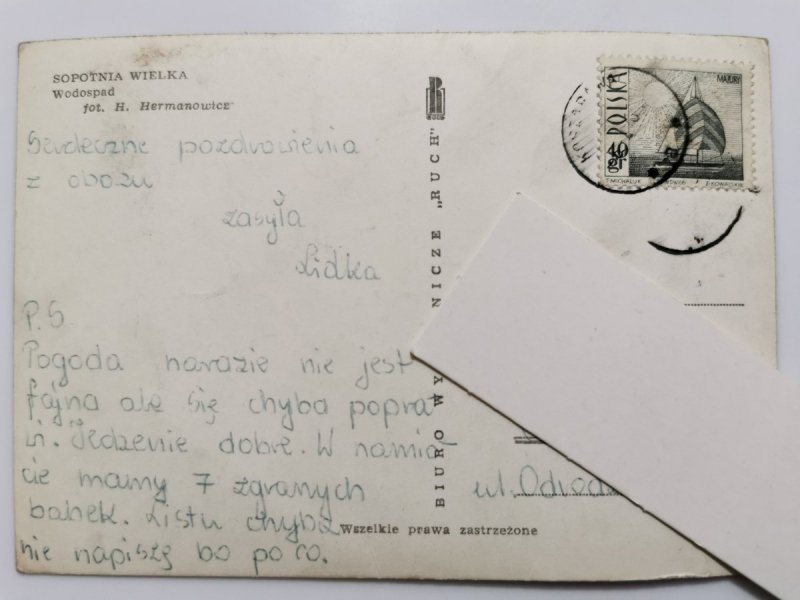 SOPOTNIA WIELKA
Wodospad
fot. H. Hermanowicz
Serdeczne pozdrowienia
z obozu
zasyła
Lidka
P.S
Pogoda narazie nie jest
fajna ale się chyba popra
wi. Jedzenie dobre. W namio
cie mamy 7 zgranych
babek. Listu chyba
nie napiszę bo po co.
BIURO WY NICZE „RUCH"
Wszelkie prawa zastrzeżone
POLSKA
MAZURY
40 gr
T. MICHALUK
Z. KOWALSKI
ul.